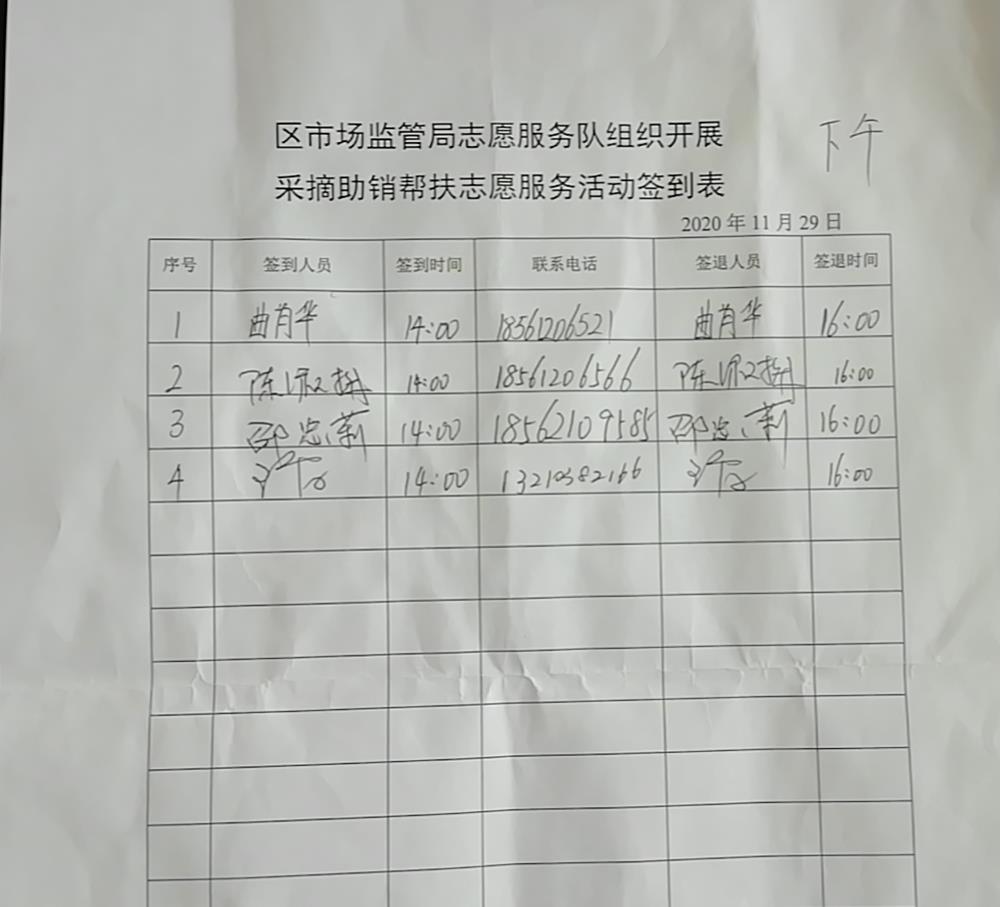 区市场监管局志愿服务队组织开展
下午
采摘助销帮扶志愿服务活动签到表
2020 年 11 月 29 日
序号 签到人员 签到时间 联系电话 签退人员 签退时间
1 曲肖华 14:00 18561206521 曲肖华 16:00
2 陈淑 14:00 18561206566 陈淑 16:00
3 邵忠莉 14:00 18562109585 邵忠莉 16:00
4 14:00 13210382166 16:00